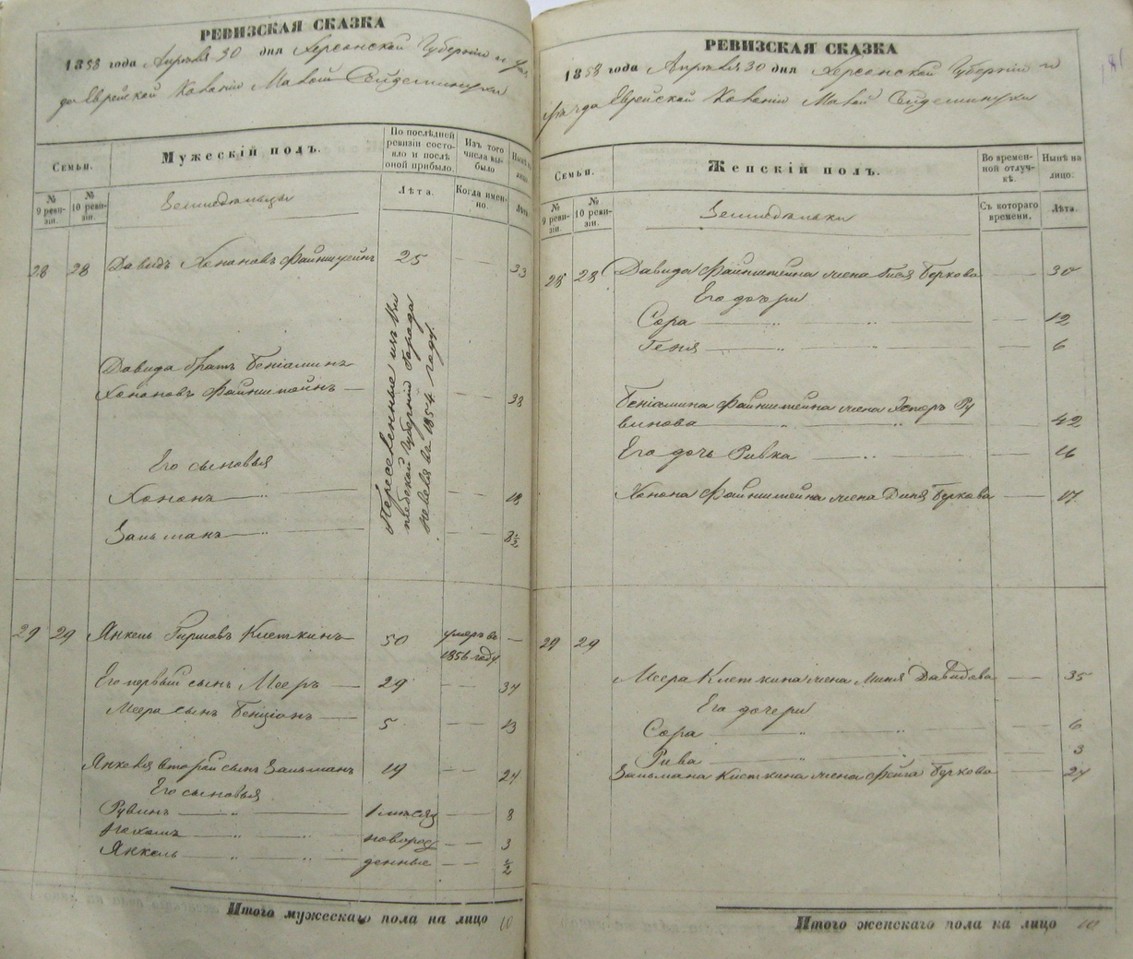 РЕВИЗСКАЯ СКАЗКА
1858 года Апреля 30 дня Херсонской Губернии и уез
да Еврейской Колонии Малой Сейдеминухи
Семьи.
Мужескій полъ.
По послѣдней ревизіи состояло и послѣ оной прибыло.
Изъ того числа выбыло
Нынѣ на лицо
№ 9 ревизіи.
№ 10 ревизіи.
Земледѣльцы
Лѣта.
Когда именно.
Лѣта
28 28 Давидъ Хононовъ Файнштейнъ 25 — — 33
Переселенные изъ Ви
тебской Губерніи города
Невеля въ 1854 году.
Давида братъ Беніаминъ
Хононовъ Файнштейнъ — — — 38
Его сыновья
Хононъ — — — 18
Зальманъ — — — 2½
29 29 Янкель Гиршовъ Клеткинъ 50 умеръ въ 1856 году —
Его первый сынъ Мееръ — 29 — — 34
Меера сынъ Бенціонъ — 5 — — 13
Янкеля второй сынъ Зальманъ 19 — — 24
Его сыновья
Рувинъ — 1 мѣсяц — — 8
— новорож — — 3
Янкель — денные — — ½
Итого мужескаго пола на лицо 10
РЕВИЗСКАЯ СКАЗКА
1858 года Апреля 30 дня Херсонской Губерніи и
уезда Еврейской Колоніи Малой Сейдеминухи
Семьи.
Женскій полъ.
Во временной отлучкѣ.
Нынѣ на лицо:
№ 9 ревизіи.
№ 10 ревизіи.
Земледѣльки
Съ котораго времени.
Лѣта.
28 28 Давида Файнштейна жена Беркова — 30
Его дочери
Сора — — 12
Геня — — 6
Беніамина Файнштейна жена Эстеръ Ру
винова — — 42
Его дочь Ривка — — 16
Хонона Файнштейна жена Диня Беркова — 17
29 29
Меера Клеткина жена Миня Давидова — 35
Его дочери
Сора — — 6
Рива — — 3
Зальмана Клеткина жена Фейга Беркова — 27
Итого женскаго пола на лицо 10